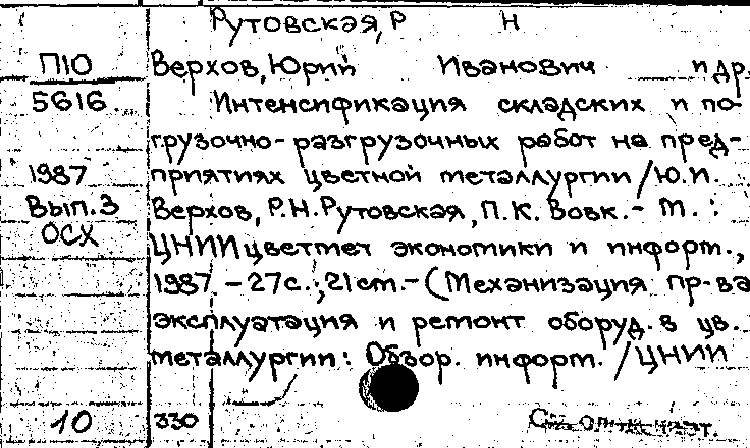 Рутовская, Р Н
П10
Верхов, Юрий Иванович и др.
5616
Интенсификация складских и по-
грузочно-разгрузочных работ на пред-
1987
приятиях цветной металлургии /Ю.И.
Вып.3
Верхов, Р.Н. Рутовская, П.К. Вовк.- М.:
ОСХ
ЦНИИцветмет экономики и информ.,
1987.-27с.;21см.-(Механизация пр-ва
эксплуатация и ремонт оборуд. в цв.
металлургии: Обзор. информ. /ЦНИИ
10
330
См.